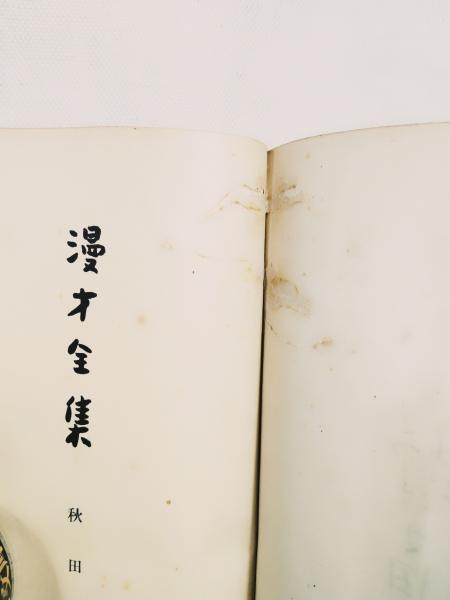 漫才全集
秋田